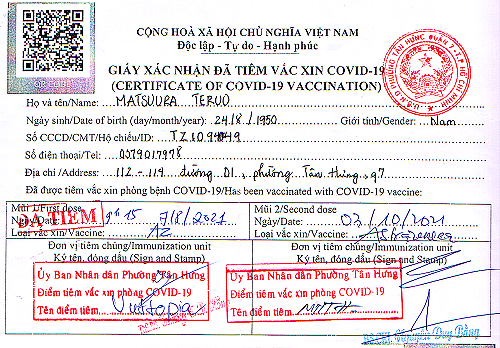 CỘNG HOÀ XÃ HỘI CHỦ NGHĨA VIỆT NAM
Độc lập - Tự do - Hạnh phúc
GIẤY XÁC NHẬN ĐÃ TIÊM VẮC XIN COVID-19
(CERTIFICATE OF COVID-19 VACCINATION)
Họ và tên/Name: MATSUURA TERUO
Ngày sinh/Date of birth (day/month/year): 24/8/1950 Giới tính/Gender: Nam
Số CCCD/CMT/Hộ chiếu/ID:
Số điện thoại/Tel: 0379017998
Địa chỉ/Address: 112-114 đường D1, phường Tân Hưng, q7
Đã được tiêm vắc xin phòng bệnh COVID-19/Has been vaccinated with COVID-19 vaccine:
Mũi 1/First dose Mũi 2/Second dose
ĐÃ TIÊM
Ngày/Date: 7/8/2021 Ngày/Date: 03/10/2021
Loại vắc xin/Vaccine: AZ Loại vắc xin/Vaccine:
Đơn vị tiêm chủng/Immunization unit Đơn vị tiêm chủng/Immunization unit
Ký tên, đóng dấu (Sign and Stamp) Ký tên, đóng dấu (Sign and Stamp)
Ủy Ban Nhân dân Phường Tân Hưng Ủy Ban Nhân dân Phường Tân Hưng
Điểm tiêm vắc xin phòng COVID-19 Điểm tiêm vắc xin phòng COVID-19
Tên điểm tiêm: Tên điểm tiêm: